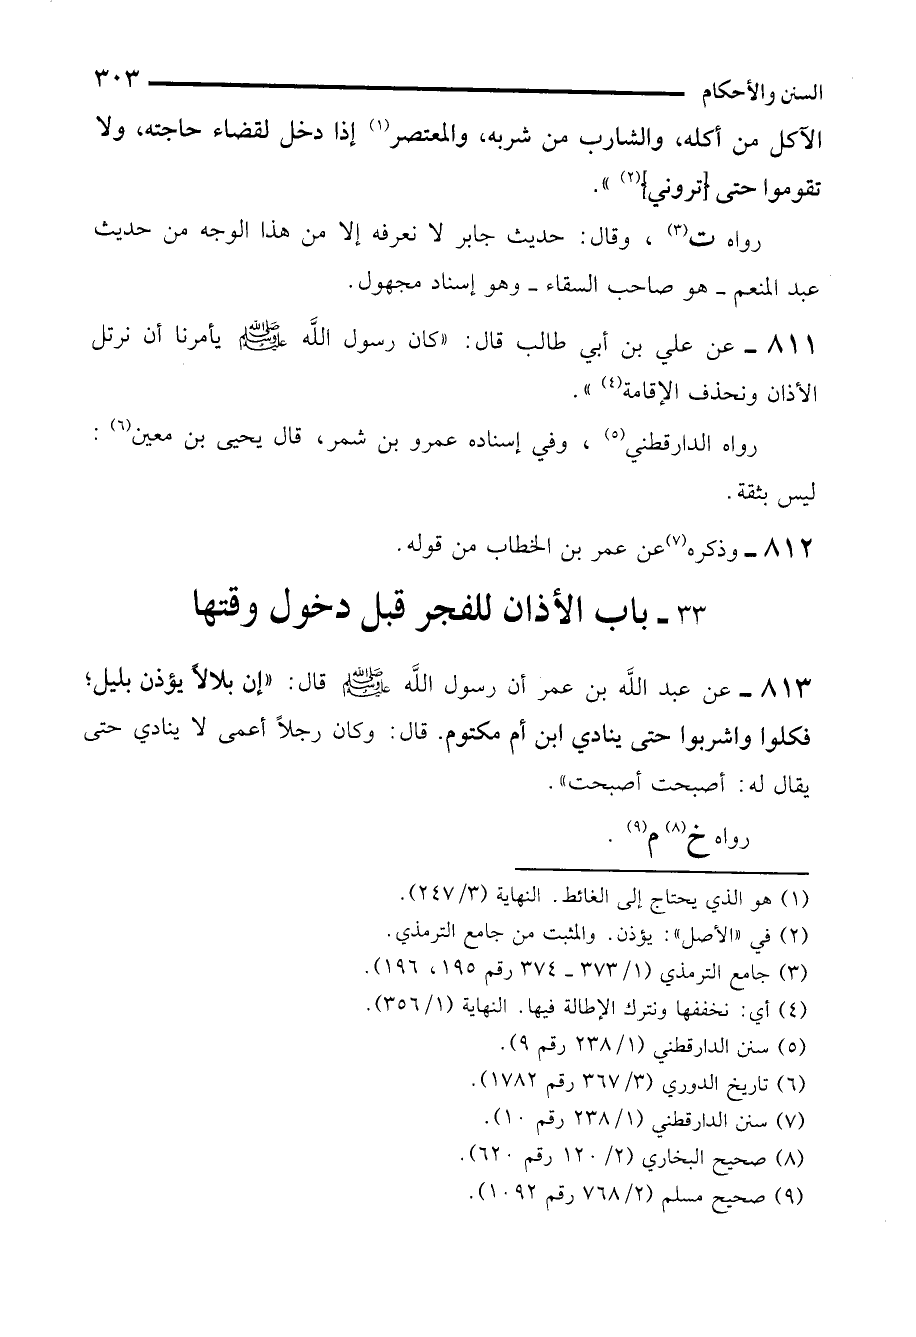 السنن والأحكام ٣٠٣
الآكل من أكله، والشارب من شربه، والمعتصر(١) إذا دخل لقضاء حاجته، ولا
تقوموا حتى {تروني}(٢) ».
رواه ت(٣) ، وقال: حديث جابر لا نعرفه إلا من هذا الوجه من حديث
عبد المنعم ـ هو صاحب السقاء ـ وهو إسناد مجهول.
٨١١ ـ عن علي بن أبي طالب قال: «كان رسول اللَّه ﷺ يأمرنا أن نرتل
الأذان ونحذف الإقامة(٤) ».
رواه الدارقطني(٥) ، وفي إسناده عمرو بن شمر، قال يحيى بن معين(٦) :
ليس بثقة.
٨١٢ ـ وذكره(٧)عن عمر بن الخطاب من قوله.
٣٣ ـ باب الأذان للفجر قبل دخول وقتها
٨١٣ ـ عن عبد اللَّه بن عمر أن رسول اللَّه ﷺ قال: «إن بلالاً يؤذن بليل؛
فكلوا واشربوا حتى ينادي ابن أم مكتوم. قال: وكان رجلاً أعمى لا ينادي حتى
يقال له: أصبحت أصبحت».
رواه خ(٨) م(٩) .
(١) هو الذي يحتاج إلى الغائط. النهاية (٢٤٧/٣).
(٢) في «الأصل»: يؤذن. والمثبت من جامع الترمذي.
(٣) جامع الترمذي (١/ ٣٧٣ ـ ٣٧٤ رقم ١٩٥، ١٩٦).
(٤) أي: نخففها ونترك الإطالة فيها. النهاية (٣٥٦/١).
(٥) سنن الدارقطني (٢٣٨/١ رقم ٩).
(٦) تاريخ الدوري (٣٦٧/٣ رقم ١٧٨٢).
(٧) سنن الدارقطني (٢٣٨/١ رقم ١٠).
(٨) صحيح البخاري (٢/ ١٢٠ رقم ٦٢٠).
(٩) صحيح مسلم (٧٦٨/٢ رقم ١٠٩٢).